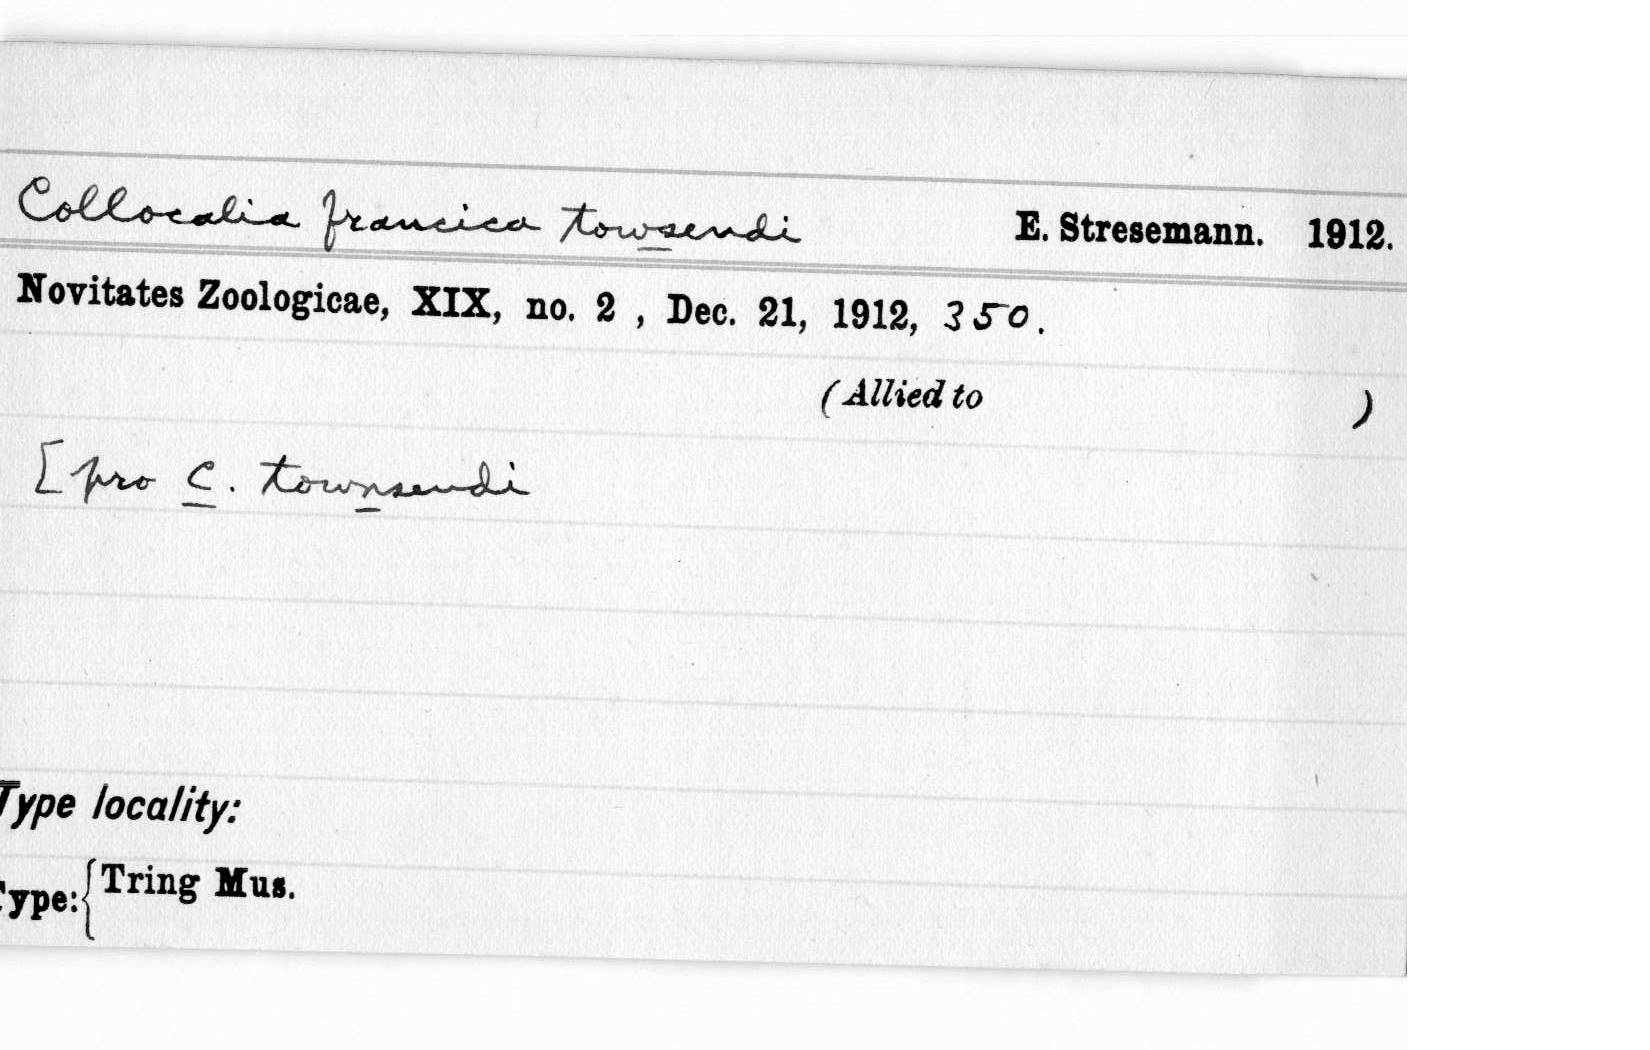 Collocalia francica towsendi E. Stresemann. 1912.
Novitates Zoologicae, XIX, no. 2 , Dec. 21, 1912, 350.
(Allied to )
[pro C. townsendi
Type locality:
Type: { Tring Mus.